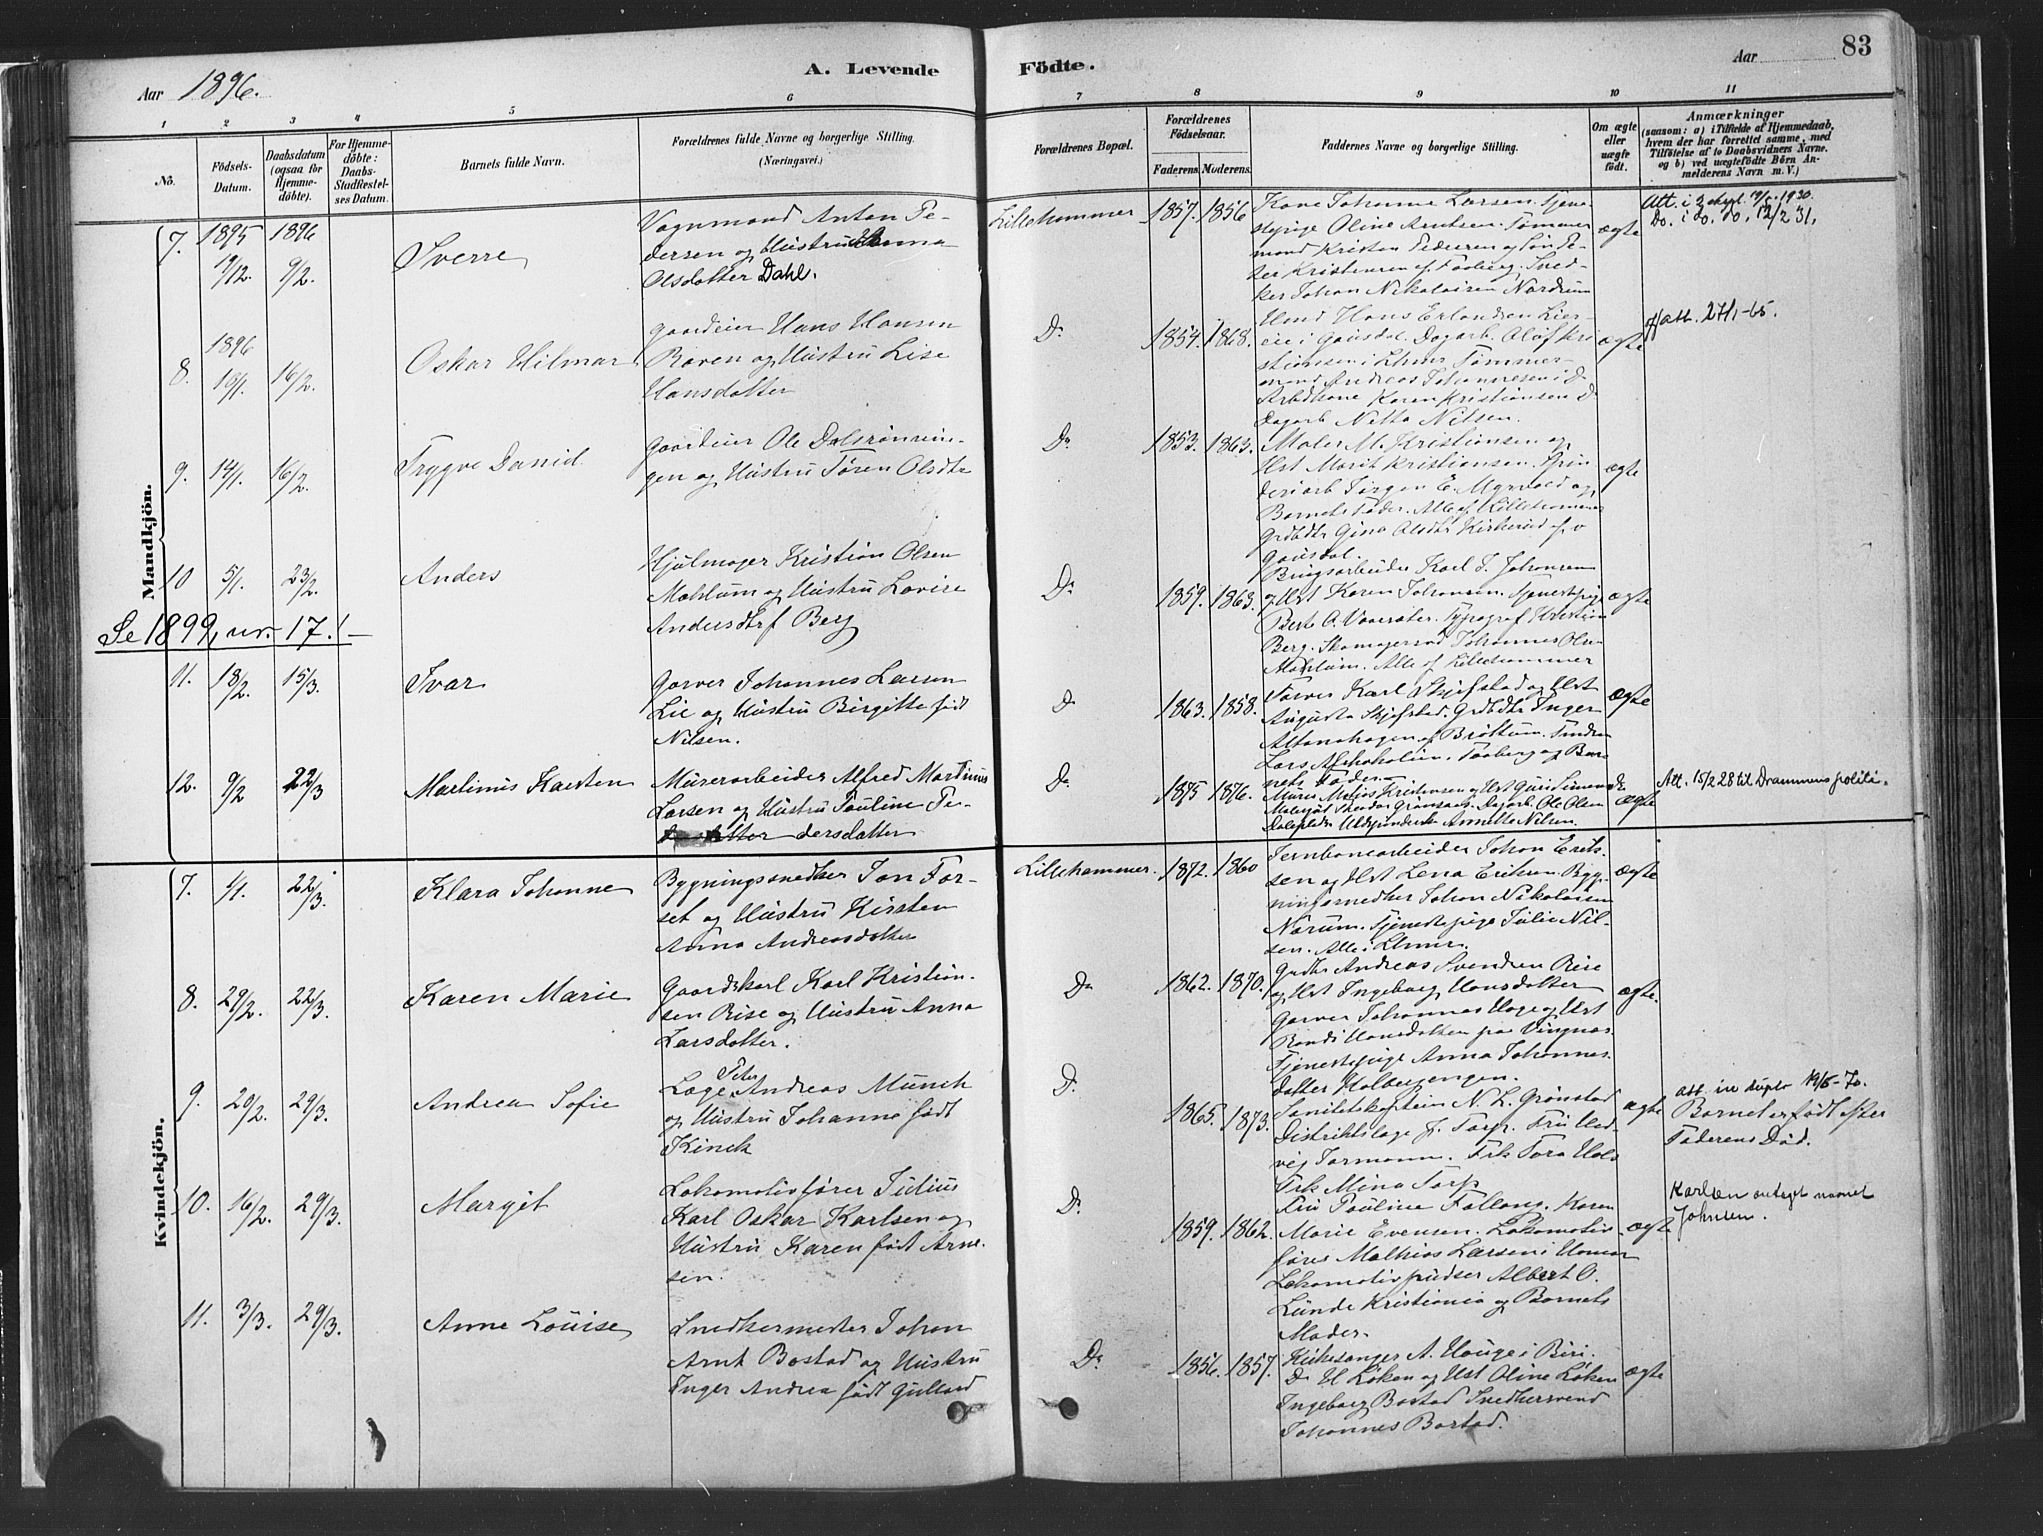 Aar 1896.
A. Levende
Födte.
Aar
83
1
2
3
4
5
6
7
8
9
10
11
No.
Födsels-
Datum.
Daabsdatum
(ogsaa for
Hjemme-
døbte).
For Hjemme-
døbte:
Daabs-
Stadfæstel-
ses Datum.
Barnets fulde Navn.
Forældrenes fulde Navne og borgerlige Stilling.
(Næringsvei.)
Forældrenes Bopæl.
Forældrenes
Födselsaar.
Faderens.
Moderens.
Faddernes Navne og borgerlige Stilling.
Om ægte
eller
uægte
født.
Anmærkninger
(saasom: a) i Tilfælde af Hjemmedaab,
hvem der har forrettet samme, med
Tilföielse af to Daabsvidners Navne.
og b) ved uægtefödte Börn An-
melderens Navn m. V.)
Mandkjön.
7.
1895
19/12.
1896
9/2.
Sverre
Vognmand Anton Pe-
dersen og Hustru
Olsdatter Dahl.
Lillehammer
1857. 1856
Kone Johanne Larsen. Tjene
stepige Oline Arntsen. Tømmer
mand Kristian Pedersen og
Kristensen af Faaberg. Sned-
ker Johan Nikolaisen Nordrum
ægte
Att. i 1930.
Do. i do. do. 12/2 31.
8.
1896
16/2.
Oskar Hilmar
Gaardeier Hans Hansen
Roven og Hustru Lise
Hansdatter
Do
1854. 1868.
Hans Erlandsen
i Gausdal. Dagarb. Olaf Kri
stiansen i Lhmr Tømmer-
mand Andreas Johannesen i D
Arbdkone Karen Kristiansen D
Dagarb Netta Nilsen.
ægte
Att. 27/1-65.
9.
14/1.
16/2.
Trygve Daniel
Gaardeier Ole Dalsrønnin-
gen og Hustru Tøren Olsdtr
Do
1853. 1863.
Maler M. Kristiansen og
Hst Marit Kristiansen.
Jørgen E. Myrvold og
Barnets Fader. Alle af Lillehammer
Grdbdtr Gina Olsdtr Kirkerud af ø
Gausdal.
ægte
10
5/1.
23/2.
Anders
Hjulmager Kristian Olsen
Mæhlum og Hustru Lovise
Andersdtr f Berg
Do
1859. 1863.
Brugsarbeider Karl J. Johansen
og Hst Karen Johansen. Tjenestepige
Berte O. Typograf Kristian
Berg. Skomagersvd Johannes Olsen
Mæhlum. Alle af Lillehammer
ægte
Se 1899, nr. 17.!-
11.
18/2.
15/3.
Ivar
Garver Johannes Larsen
Lie og Hustru Birgitte født
Nilsen.
Do
1863. 1858.
Farver Karl Skjefstad og Hst
Augusta Skjefstad. Grdbdtr Inger
af Brøttum.
Lars Faaberg og Bar
nets Fader.
ægte
12.
9/2
22/3
Martinus Karsten
Murerarbeider Alfred Martinus
Larsen og Hustru Pauline Pe-
dersdatter
Do
1875 1876.
Murer Kristensen og Hst
Dagarb Ole Olsen
Annette Nilsen.
ægte
Att. 15/2 28 til Drammens politi-
Kvindekjön.
7.
4/1.
22/3.
Klara Johanne
Bygningssnedker Jon For-
set og Hustru Kirsten
Anna Andreasdatter
Lillehammer.
1872. 1860
Jernbanearbeider Johan Erik-
sen og Hst Lena Eriksen Byg-
ningssnedker Johan Nikolaisen
Norum. Tjenestepige Julie Nil-
sen. Alle i Lhmr.
ægte
8.
29/2.
22/3.
Karen Marie
Gaardskarl Karl Kristian-
sen Rise og Hustru Anna
Larsdatter.
Do
1862. 1870.
Andreas Svendsen Rise
og Hst Ingeborg Hansdatter
Garver Johannes Hage og Hst
Randi Hansdatter paa Vingnæs.
Tjenestepige Anna Johannes-
datter Holbergengen.
ægte.
9.
20/2.
29/3.
Andrea Sofie
Peter
Læge Andreas Munch
og Hustru Johanne født
Kinck
D.
1865. 1873.
Sanitetskaptein N. L. Grønstad
Distriktslæge J. Torp. Fru Hed-
vig Tormann. Frk Tora
Frk Mina Torp
ægte
att. in duplo 19/5-70.
Barnet er født efter
Faderens Død.
10.
16/2.
29/3.
Margit
Lokomotivfører Julius
Karl Oskar Karlsen og
Hustru Karen født Arne-
sen.
D.
1859. 1862.
Fru Pauline Fallang. Karen
Marie Evensen. Lokomotiv-
fører Mathias Larsen i Hamar
Lokomotivpudser Albert O.
Lunde Kristiania og Barnets
Moder.
ægte
Karlsen antaget navnet
Johnsen.
11.
3/3.
29/3.
Anne Louise
Snedkermester Johan
Arnt Bostad og Hustru
Inger Andrea født Gullord
Do
1856. 1857.
Kirkesanger A. Hauge i Biri.
D H Løken og Hst Oline Løken
Ingeborg Bostad Snedkersvend
Johannes Bostad.
ægte